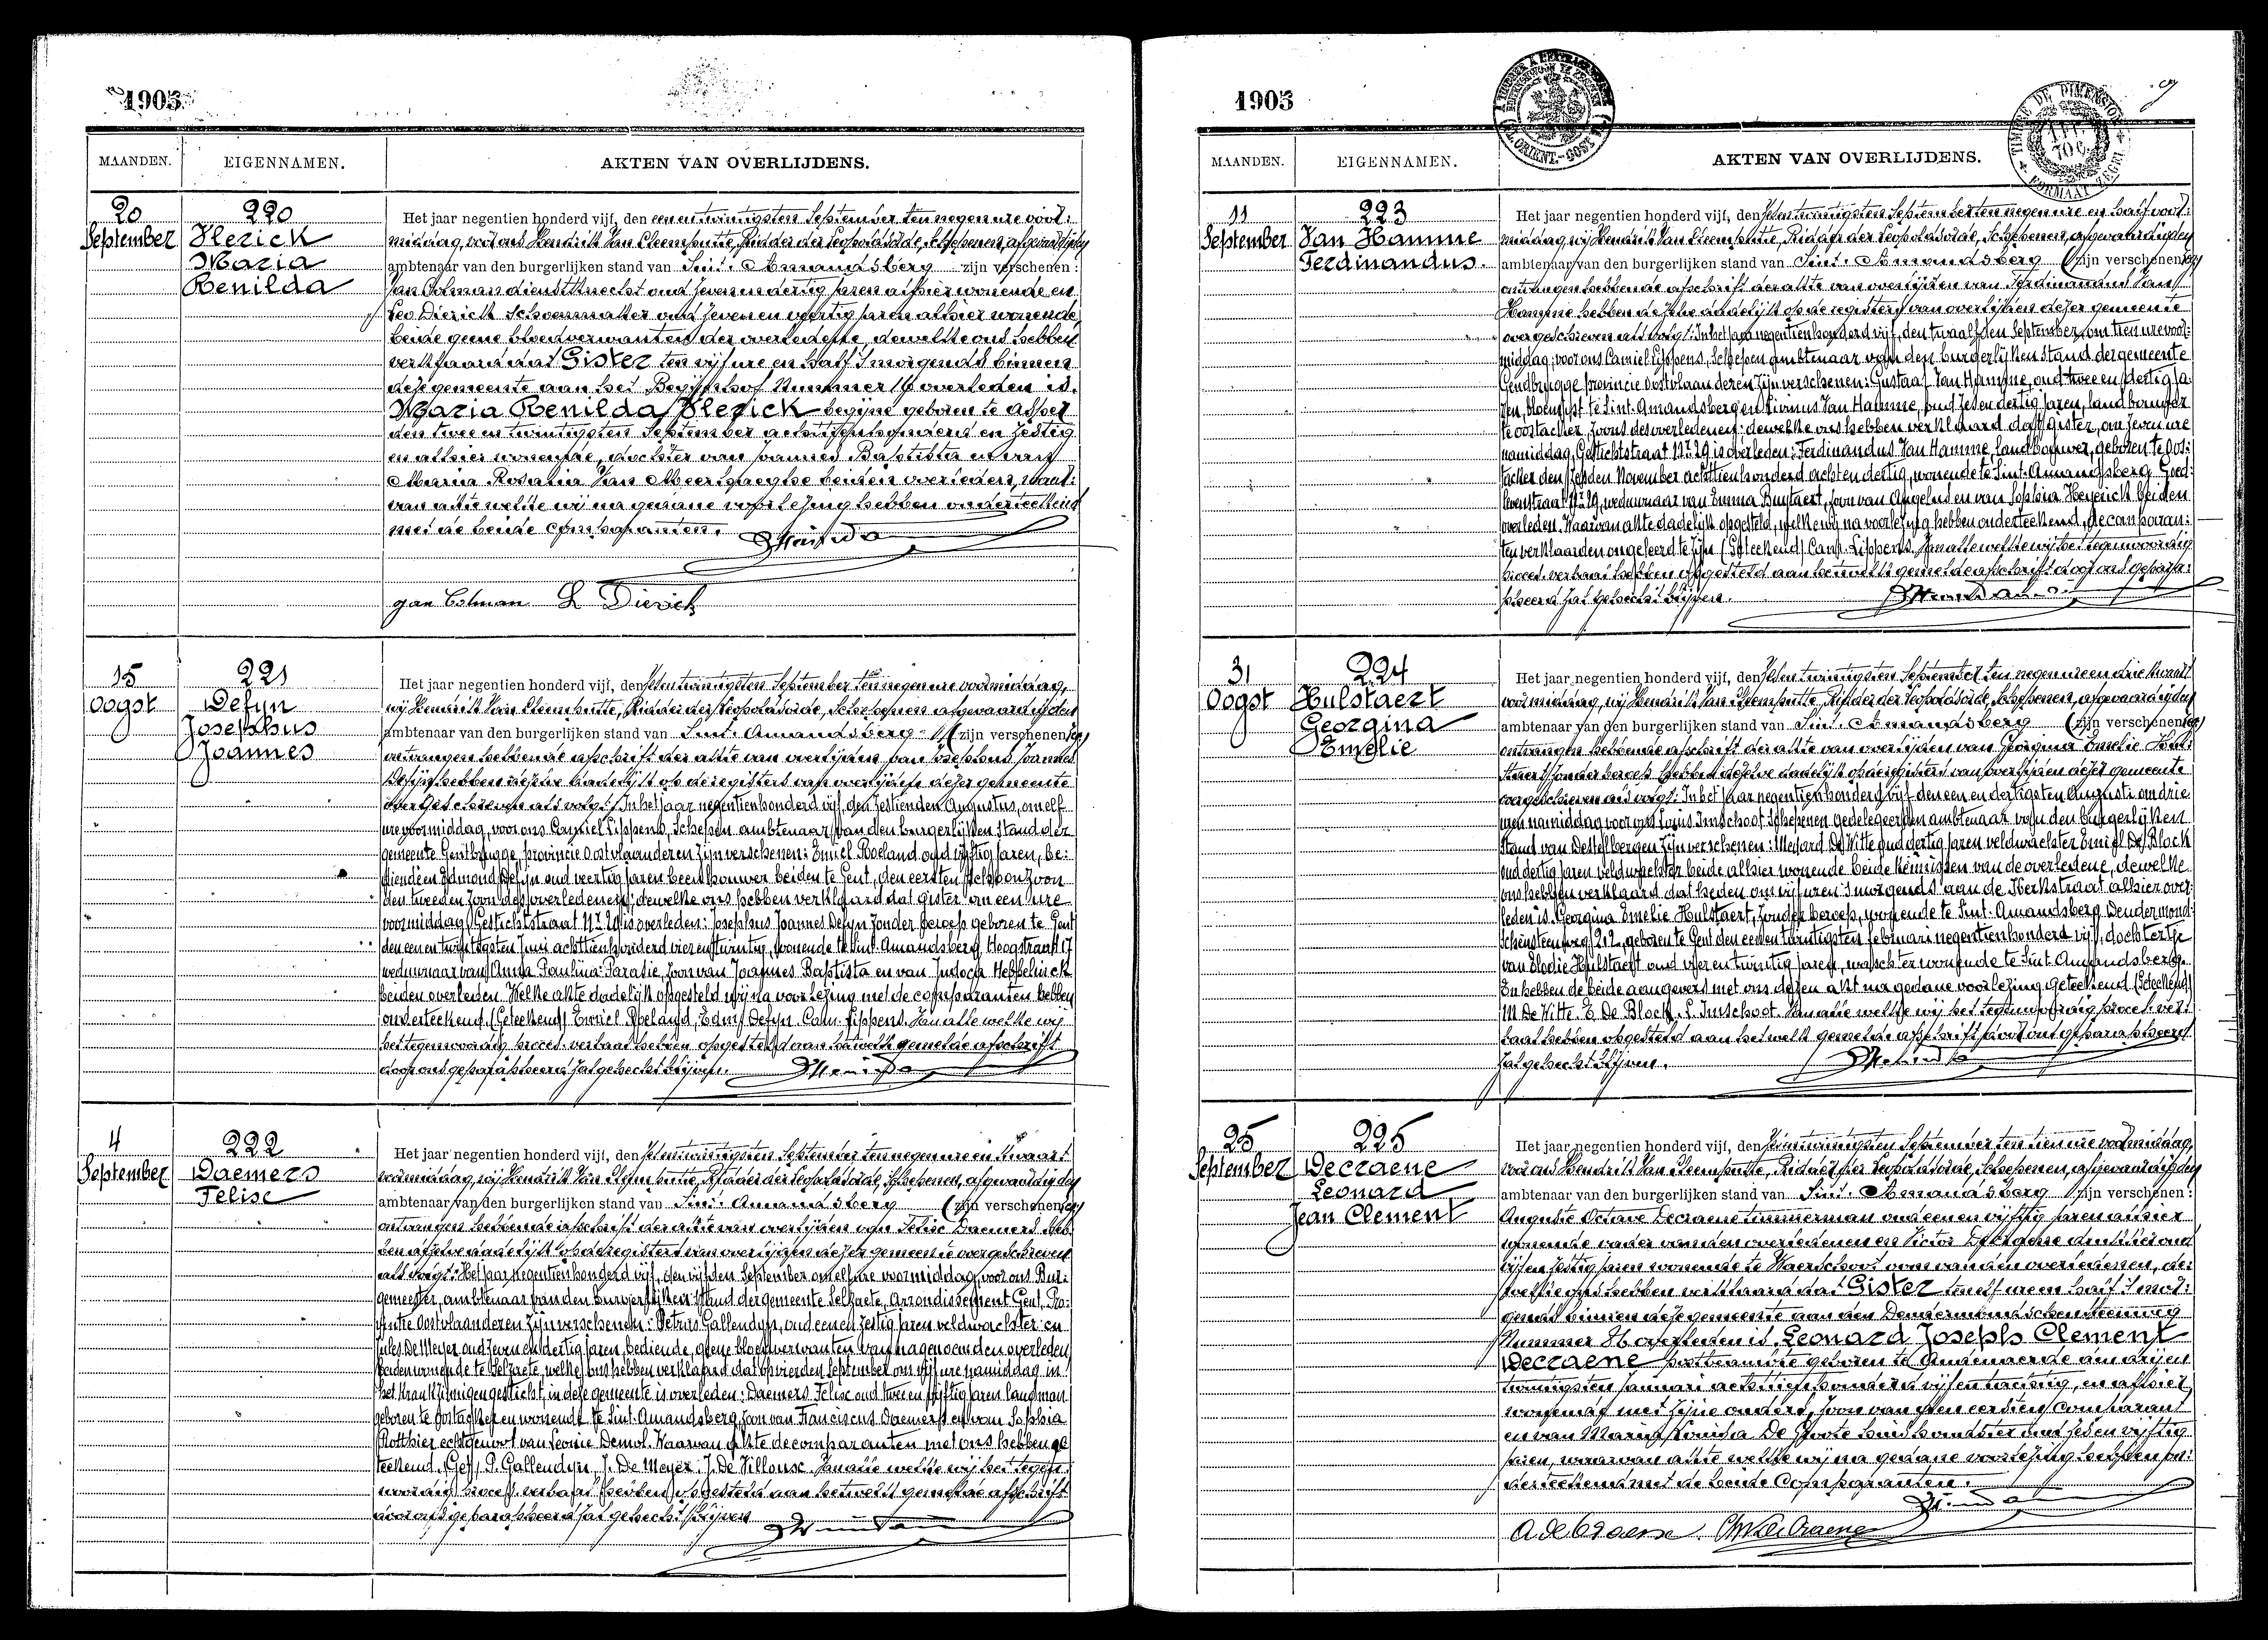 1905
MAANDEN. EIGENNAMEN. AKTEN VAN OVERLIJDENS.
20 September
220
Flerick
Maria
Renilda
Het jaar negentien honderd vijf, den een en twintigsten September ten negen ure voor:
middag, voor ons Hendrik Van Cleemputte, Ridder der Leopoldsorde, Schepenen, afgevaardigden
ambtenaar van den burgerlijken stand van Sint. Amandsberg zijn verschenen:
Jan Colman dienstknecht oud zeven en dertig jaren alhier wonende en
Leo Dierick schoenmaker oud zeven en veertig jaren alhier wonende
beide geene bloedverwanten der overledene, dewelke ons hebben
verklaard dat Gister ten vijf ure en half 's morgends binnen
deze gemeente aan het Begijnhof Nummer overleden is
Maria Renilda Flerick begijne geboren te Asper
den twee en twintigsten September achttien honderd en zestig
en alhier wonende, dochter van Joannes Baptista en van
Maria Rosalia Van Meerhaeghe beiden overleden, waar:
van akte welke wij na gedane voorlezing hebben onderteekend
met de beide comparanten.
Jan Colman L Dierick
15 Oogst
221
Defyn
Josephus
Joannes
Het jaar negentien honderd vijf, den zes en twintigsten September ten negen ure voormiddag,
wij Hendrik Van Cleemputte, Ridder der Leopoldsorde, Schepenen afgevaardigden
ambtenaar van den burgerlijken stand van Sint. Amandsberg (zijn verschenen
ontvangen hebbende afschrift der akte van overlijden van Josephus Joannes
Defyn hebben dezelve dadelijk op de registers van overlijden dezer gemeente
overgeschreven als volgt: In het jaar negentienhonderd vijf, den zestienden Augustus, om elf
ure voormiddag, voor ons Camiel Lippens, Schepen ambtenaar van den burgerlijken stand der
gemeente Gentbrugge, provincie Oostvlaanderen zijn verschenen: Emiel Roeland oud vijftig jaren, be:
diende en Edmond Defyn oud veertig jaren beenhouwer beiden te Gent, den eersten schoonzoon
den tweeden zoon des overledenen; dewelke ons hebben verklaard dat gister om een ure
voormiddag Gestichtstraat Nr 29 is overleden: Josephus Joannes Defyn zonder beroep geboren te Gent
den een en twintigsten Juni achttienhonderd vier en twintig, wonende te Sint. Amandsberg, Hoogstraat 17
weduwnaar van Anna Paulina Paradie, zoon van Joannes Baptista en van Judoca Hebbelinck
beiden overleden. Welke akte dadelijk opgesteld wij na voorlezing met de comparanten hebben
onderteekend. (Geteekend) Emiel Roeland, Edm. Defyn. Cam. Lippens. Van alle welke wij
het tegenwoordig proces-verbaal hebben opgesteld aan hetwelk gemelde afschrift
door ons geparapheerd zal gehecht blijven.
4 September
222
Daemers
Felise
Het jaar negentien honderd vijf, den zes en twintigsten September ten negen ure en kwaart
voormiddag, wij Hendrik Van Cleemputte, Ridder der Leopoldsorde, Schepenen, afgevaardigden
ambtenaar van den burgerlijken stand van Sint. Amandsberg (zijn verschenen
ontvangen hebbende afschrift der akte van overlijden van Felise Daemers heb:
ben dezelve dadelijk op de registers van overlijden dezer gemeente overgeschreven
als volgt: Het jaar negentienhonderd vijf, den vijfden September om elf ure voormiddag, voor ons Bur:
gemeester, ambtenaar van den burgerlijken stand der gemeente Selzaete, Arrondissement Gent, Pro:
vintie Oostvlaanderen zijn verschenen: Petrus Gallendyn, oud een en zestig jaren veldwachter en
Jules De Meyer oud zeven en dertig jaren bediende, geene bloedverwanten van nagenoemden overleden
beiden wonende te Selzaete, welke ons hebben verklaard dat op vierden September om vijf ure namiddag in
het Krankzinnigengesticht in deze gemeente is overleden: Daemers Felise oud twee en vijftig jaren landman
geboren te Oostacker en wonende te Sint. Amandsberg zoon van Franciscus Daemers en van Sophia
Rotthier echtgenoot van Leonie Demol. Waarvan akte de comparanten met ons hebben ge
teekend. (Get) P. Gallendyn, J. De Meyer. J. De Villouse. Van alle welke wij het tegen:
woordig proces-verbaal hebben opgesteld aan hetwelk gemelde afschrift
door ons geparapheerd zal gehecht blijven
1905
MAANDEN. EIGENNAMEN. AKTEN VAN OVERLIJDENS.
TIMBRE DE DIMENSION
1 FR.
70 C.
FORMAAT ZEGEL
11 September
223
Van Hamme
Ferdinandus.
Het jaar negentien honderd vijf, den zes en twintigsten September ten negen ure en half voor:
middag, wij Hendrik Van Cleemputte, Ridder der Leopoldsorde, Schepenen, afgevaardigden
ambtenaar van den burgerlijken stand van Sint. Amandsberg (zijn verschenen
ontvangen hebbende afschrift der akte van overlijden van Ferdinandus Van
Hamme hebben dezelve dadelijk op de registers van overlijden dezer gemeente
overgeschreven als volgt: In het jaar negentien honderd vijf, den twaalfden September, om tien ure voor:
middag, voor ons Camiel Lippens, Schepen ambtenaar van den burgerlijken stand der gemeente
Gendbrugge provincie Oostvlaanderen zijn verschenen: Gustaaf Van Hamme, oud twee en dertig ja:
ren, bloemist te Sint. Amandsberg en Livinus Van Hamme, oud zes en dertig jaren, landbouwer
te Oostacker, zoons des overledenen: dewelke ons hebben verklaard dat gister, om zeven ure
namiddag, Gestichtstraat Nr 29 is overleden: Ferdinandus Van Hamme, landbouwer, geboren te Oos:
tacker den zesden November achttienhonderd acht en dertig, wonende te Sint. Amandsberg Goed:
levenstraat Nr 29, weduwnaar van Emma Buytaert, zoon van Angelus en van Sophia Heyerick beiden
overleden. Waarvan akte dadelijk opgesteld, welke wij na voorlezing hebben onderteekend, de comparan:
ten verklaarden ongeleerd te zijn (Geteekend) Cam. Lippens. Van alle welke wij het tegenwoordig
proces-verbaal hebben opgesteld aan hetwelk gemelde afschrift door ons geparaph:
pheerd zal gehecht blijven.
31 Oogst
224
Hulstaert
Georgina
Emelie
Het jaar negentien honderd vijf, den zes en twintigsten September ten negen ure en drie kwaart
voormiddag, wij Hendrik Van Cleemputte, Ridder der Leopoldsorde, Schepenen, afgevaardigden
ambtenaar van den burgerlijken stand van Sint. Amandsberg (zijn verschenen
ontvangen hebbende afschrift der akte van overlijden van Georgina Emelie Hul:
staert zonder beroep hebben dezelve dadelijk op de registers van overlijden dezer gemeente
overgeschreven als volgt: In het jaar negentienhonderd vijf den een en dertigsten Augusti om drie
uren namiddag voor ons Livius Imschoot Schepenen gedelegeerden ambtenaar van den burgerlijken
stand van Destelbergen zijn verschenen: Medard De Witte oud dertig jaren veldwachter Emiel De Block
oud dertig jaren veldwachter beide alhier wonende beide kennissen van de overledene, dewelke
ons hebben verklaard dat heden om vijf uren 's morgends aan de Kerkstraat alhier over:
leden is Georgina Emelie Hulstaert, zonder beroep, wonende te Sint. Amandsberg Dendermond:
schensteenweg 212, geboren te Gent den een en twintigsten februari negentienhonderd vijf, dochtertje
van Elodie Hulstaert oud vier en twintig jaren, waschter wonende te Sint. Amandsberg.
En hebben de beide aangevers met ons dezen akt na gedane voorlezing geteekend (Geteekend)
M De Witte. E. De Block. L. Imschoot. Van alle welke wij het tegenwoordig proces-ver:
baal hebben opgesteld aan hetwelk gemelde afschrift door ons geparapheerd
zal gehecht blijven.
25 September
225
Decraene
Leonard
Jean Clement
Het jaar negentien honderd vijf, den zes en twintigsten September ten tien ure voormiddag,
voor ons Hendrik Van Cleemputte, Ridder der Leopoldsorde, Schepenen, afgevaardigden
ambtenaar van den burgerlijken stand van Sint. Amandsberg zijn verschenen:
Auguste Octave Decraene timmerman oud een en vijftig jaren alhier
wonende vader van den overledenen en Victor Decraene drukker oud
vijf en zestig jaren wonende te Waerschoot oom van den overledenen, de:
welke ons hebben verklaard dat Gister ten elf uren half 's mor:
gends binnen deze gemeente aan den Dendermondschensteenweg
Nummer overleden is Leonard Joseph Clement
Decraene postbeambte geboren te Audenaerde den drij en
twintigsten Januari achttien honderd vijf en tachtig, en alhier
wonende met zijne ouders, zoon van den eersten comparant
en van Maria Louisa De Groote huishoudster oud zes en vijftig
jaren, waarvan akte welke wij na gedane voorlezing hebben on:
derteekend met de beide Comparanten.
A. de Craene